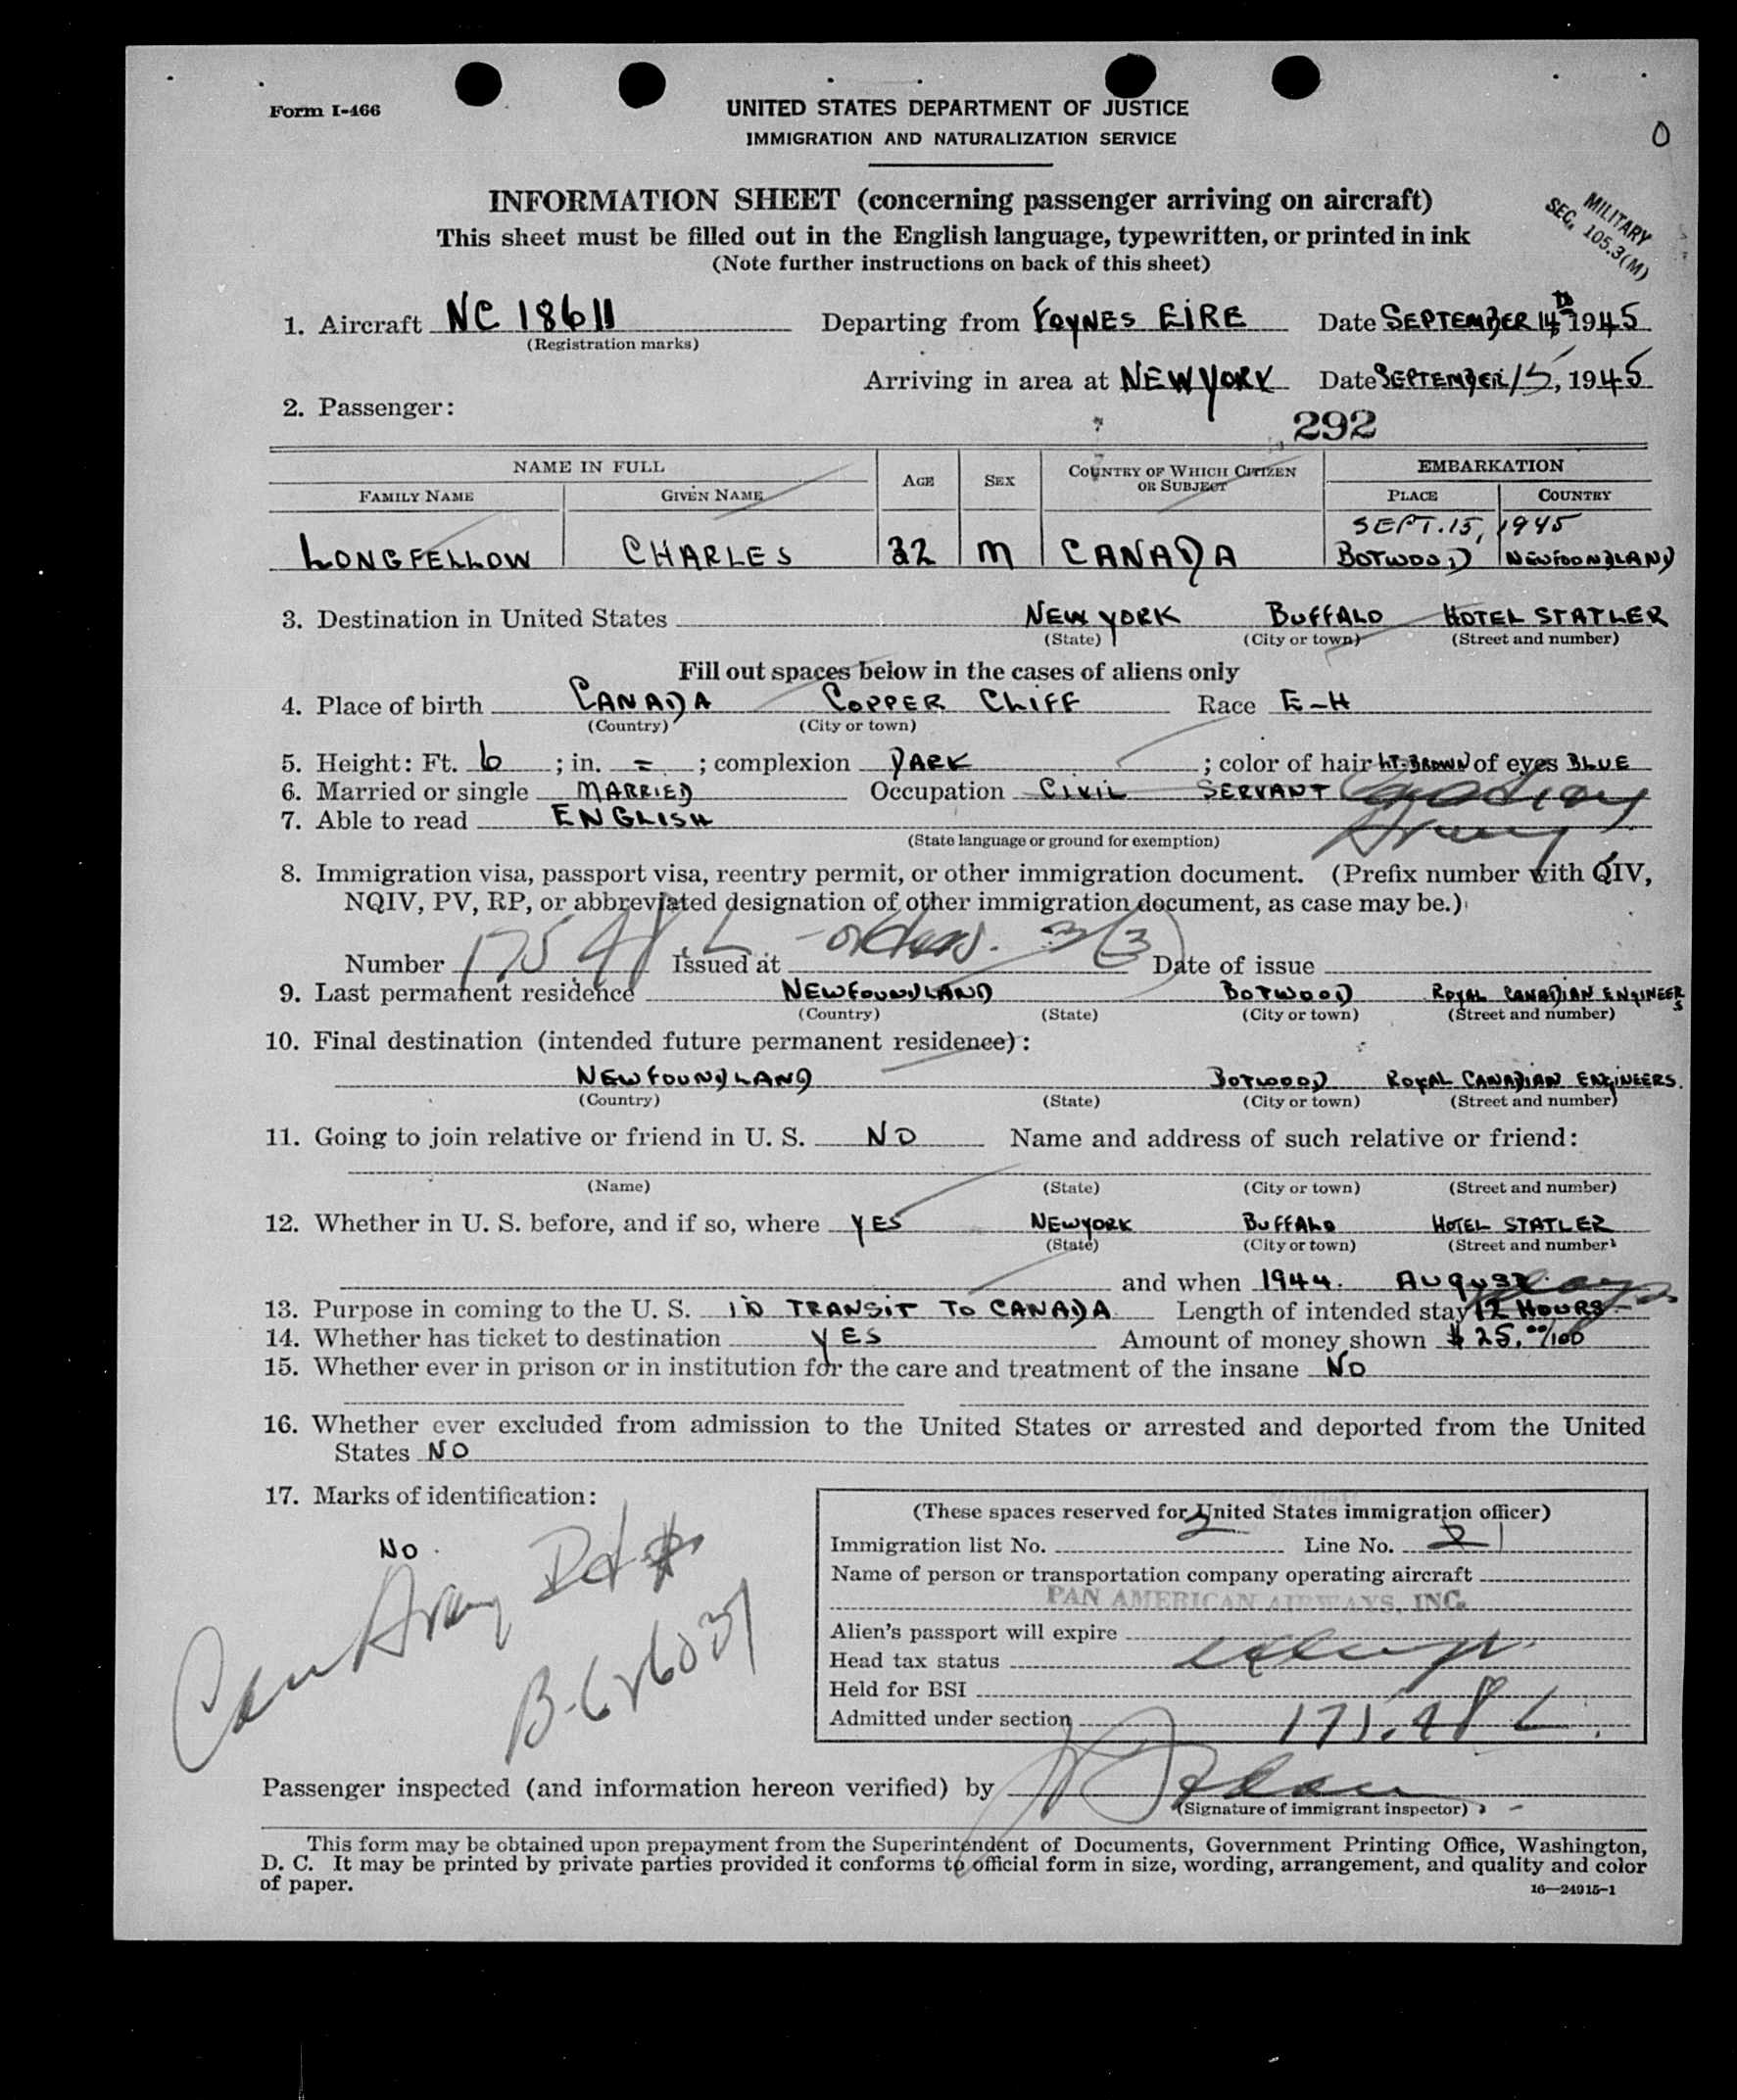 Form I-466
UNITED STATES DEPARTMENT OF JUSTICE
IMMIGRATION AND NATURALIZATION SERVICE
O
INFORMATION SHEET (concerning passenger arriving on aircraft)
This sheet must be filled out in the English language, typewritten, or printed in ink
(Note further instructions on back of this sheet)
MILITARY
SEC. 105.3(M)
1. Aircraft NC 18611 Departing from FOYNES EIRE Date SEPTEMBER 14th 1945
(Registration marks)
Arriving in area at NEW YORK Date SEPTEMBER 15, 1945
2. Passenger:
292
NAME IN FULL AGE SEX COUNTRY OF WHICH CITIZEN OR SUBJECT EMBARKATION
FAMILY NAME GIVEN NAME PLACE COUNTRY
SEPT. 15, 1945
LONGFELLOW CHARLES 32 M CANADA BOTWOOD NEWFOONDLAND
3. Destination in United States NEW YORK BUFFALO HOTEL STATLER
(State) (City or town) (Street and number)
Fill out spaces below in the cases of aliens only
4. Place of birth CANADA COPPER CLIFF Race E-H
(Country) (City or town)
5. Height: Ft. 6 ; in. = ; complexion DARK ; color of hair LT. BROWN of eyes BLUE
6. Married or single MARRIED Occupation CIVIL SERVANT
7. Able to read ENGLISH Army
(State language or ground for exemption)
8. Immigration visa, passport visa, reentry permit, or other immigration document. (Prefix number with QIV,
NQIV, PV, RP, or abbreviated designation of other immigration document, as case may be.)
Number 175.48L - orders. 3(3) Issued at Date of issue
9. Last permanent residence NEWFOUNDLAND BOTWOOD ROYAL CANADIAN ENGINEERS
(Country) (State) (City or town) (Street and number)
10. Final destination (intended future permanent residence):
NEWFOUNDLAND BOTWOOD ROYAL CANADIAN ENGINEERS.
(Country) (State) (City or town) (Street and number)
11. Going to join relative or friend in U. S. NO Name and address of such relative or friend:
(Name) (State) (City or town) (Street and number)
12. Whether in U. S. before, and if so, where YES NEW YORK BUFFALO HOTEL STATLER
(State) (City or town) (Street and number)
and when 1944. AUGUST.
13. Purpose in coming to the U. S. IN TRANSIT TO CANADA Length of intended stay 12 HOURS days
14. Whether has ticket to destination YES Amount of money shown $ 25.00/100
15. Whether ever in prison or in institution for the care and treatment of the insane NO
16. Whether ever excluded from admission to the United States or arrested and deported from the United
States NO
17. Marks of identification:
NO.
Can Army Id #
(These spaces reserved for United States immigration officer)
Immigration list No. 2 Line No. 21
Name of person or transportation company operating aircraft
PAN AMERICAN AIRWAYS, INC.
Alien's passport will expire
Head tax status
Held for BSI
Admitted under section 175.48L
Passenger inspected (and information hereon verified) by
(Signature of immigrant inspector)
This form may be obtained upon prepayment from the Superintendent of Documents, Government Printing Office, Washington,
D. C. It may be printed by private parties provided it conforms to official form in size, wording, arrangement, and quality and color
of paper.
16—24915-1